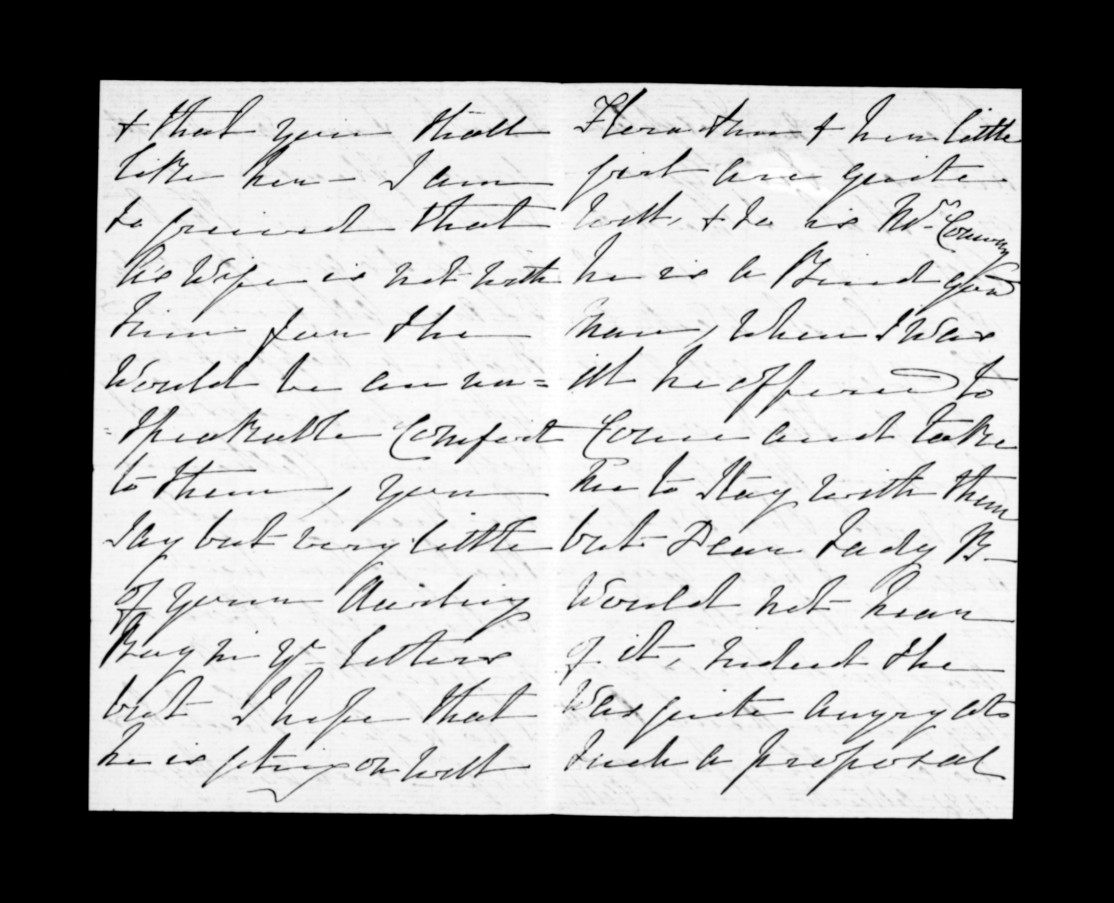 & that you shall
like her - I am
so grieved that
his Wife is not with
him for she
Would be an un=
=speakable Comfort
to them, you
say but very little
of your
Boy in yr letters
but I hope that
he is getting on well
Flora & her little
girl are quite
well, & so is Mr.
he is a Kind good
man, when I was
ill he offered to
Come and take
me to stay with them
but Dear Lady B-
Would not hear
of it, indeed she
Was quite angry at
such a proposal